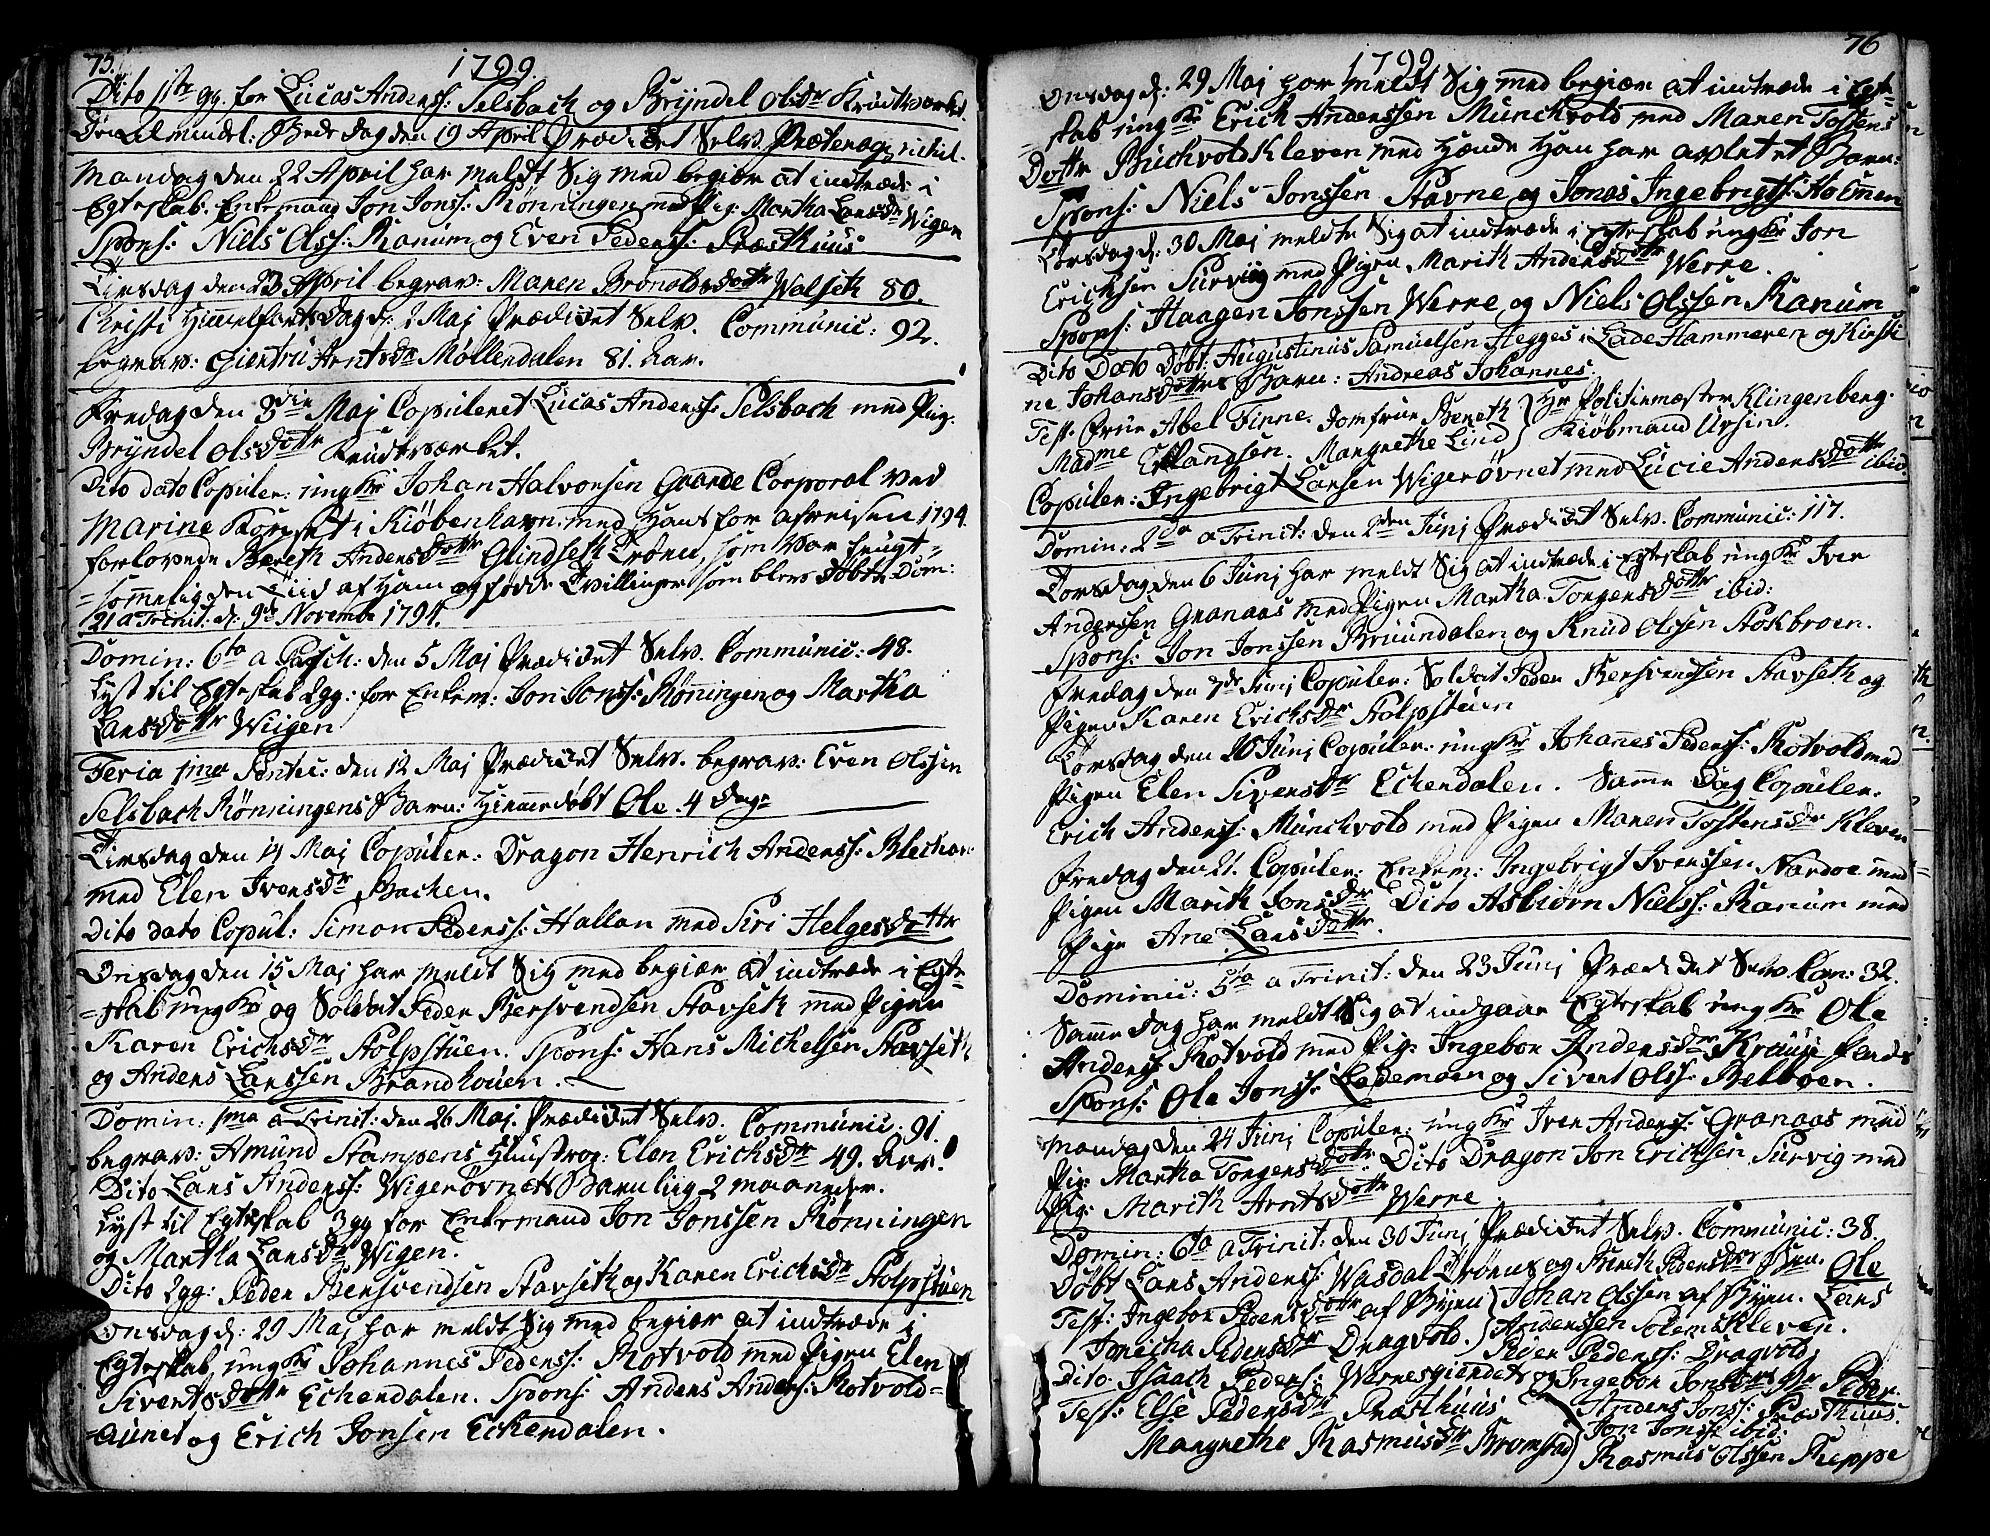 75.
1799.
Dito 1ste gg. for Lucas Anderss: Selsbach og Bryndel Olsdtr Krudtværket.
Den Almindel: Bededag den 19 April Prædiket Selv. Præteræa nihil.
Mandag den 22 April har meldt Sig med begiær at indtræde i
Egteskab. Enkemand Jon Jonss: Rønningen med Pig: Martha Larsdr Wigen
Spons: Niels Olss: Ranum og Even Pederss: Præsthuus
Tirsdag den 23 April begrav: Maren Brønoldsdottr Walseth 80.
Christi Himmelfartsdag d: 2 Maj Prædiket Selv. Communic: 92.
begrav: Giertru Arntsdr Møllendalen 81. Aar.
Fredag den 3die Maj Copuleret Lucas Anderss: Selsbach med Pig.
Bryndel Olsdottr Krudtværket.
Dito dato Copuler: ungKr Johan Halvorsen Gaarde Corporal ved
Marine Korpset i Kiøbenhavn: med Hans for afreisen 1794
forlovede Bereth Andersdottr Glindseth Trønen, som var frugt=
=sommelig den Tiid af Ham og fødde Tvillinger som blev døbte Dom:
21 a Trinit: d: 9de Novembr 1794.
Domin: 6ta a Pasch: den 5 Maj Prædiket Selv. Communic: 48.
Lyst til Egteskab 2gg: for Enkem: Jon Jonss: Rønningen og Martha
Larsdottr Wiigen
Feria 1ma Pentec: den 12 Maj Prædiket Selv. begrav: Even Olssen
Selsbach Rønningens Barn: Hiemmedøbt Ole. 4 Dage
Tirsdag den 14 Maj Copuler: Dragon Henrich Anderss: Blechan
med Elen Iversdr Bachen.
Dito dato Copul: Simon Pederss: Hallan med Siri Helgesdottr
Onsdag den 15 Maj har meldt Sig med begiær at indtræde i Egte
=skab ungKr og Soldat Peder Bersvendsen Stavseth med Pigen
Karen Erichsdr Stolpstuen. Spons: Hans Michelsen Stavseth
og Anders Larssen Brandhouen.
Domin: 1ma a Trinit: den 26 Maj. Prædiket Selv. Communic: 91.
begrav: Amund Stampens Huustroe: Elen Erichsdr 49. Aar.
Dito Lars Anderss: Wigerøvnets Barn liig 2 maaneder.
Lyst til Egteskab 3gg for Enkemand Jon Jonssen Rønningen
og Martha Larsdr Wigen.
Dito 2gg: Peder Bersvendsen Stavseth og Karen Erichsdr Stolpstuen
Onsdag d: 29 Maj har meldt Sig med begiær at indtræde i
Egteskab ungKr Johannes Pederss: Rotvold med Pigen Elen
Sivertsdottr Echendalen. Spons: Anders Anderss: Rotvold=
=aunet og Erich Jonsen Echendalen.
76
1799
Onsdag d: 29 Maj har meldt Sig med begiær at indtræde i Egte
=skab ungKr Erich Anderssen Munchvold med Maren Tostens
Dottr Buchvold Kleven med Hænde Han har avlet et Barn:
Spons: Niels Jonssen Stavne og Jonas Ingebrigts: Holmen
Torsdag d: 30 Maj meldte Sig at indtræde i Egteskab ungKr Jon
Erichsen Surviig med Pigen Marith Andersdottr Werre.
Spons: Haagen Jonssen Werre og Niels Olssen Ranum
Dito Dato Døbt: Augustinus Samuelsen Hegges i LadeHammeren og Kirsti
ne Johansdottrs Barn: Andreas Johannes.
Test. Frue Abel Finne. Jomfrue Bereth } Hr Politiemæster Klingenberg.
Madme Erlandsen. Margrethe Lind } Kiøbmand Ursin.
Copuler: Ingebrigt Larsen Wigerøvnet med Lucie Andersdottr ibid:
Domin: 2da a Trinit: den 2den Junj Prædiket Selv. Communic: 117.
Torsdag den 6 Junj har meldt Sig at indtræde i Egteskab ungKr Iver
Anderssen Granaas med Pigen Martha Torgersdottr ibid:
Spons: Jon Jonssen Bruundalen og Knud Olssen Stokbroen.
Fredag den 7de Junj Copuler: Soldat Peder Bersvendsen Stavseth og
Pigen Karen Erichsdr Stolpstuen
Torsdag den 20 Junj Copuler: ungKr Johannes Pederss: Rotvold med
Pigen Elen Siversdr Echendalen. Samme Dag Copuler.
Erich Anderss: Munchvold med Pigen Maren Tostensdr Kleven
Fredag den 21. Copuler: Enkem: Ingebrigt Iverssen Nardoe med
Pigen Marith Jonsdr Dito Asbiørn Nielss: Ranum med
Pige Ane Larsdottr.
Dominic: 5ta a Trinit: den 23 Junj Prædiket Selv. Com: 32.
Samme Dag har meldt Sig at indgaae Egteskab ungKr Ole
Anderss Rotvold med Pig: Ingebor Andersdr Kruuse
Spons: Ole Jonss: Lademoen og Sivert Olss: Belboen.
Mandag den 24 Junj Copuler: ungKr Iver Anderss: Granaas med
Pig: Martha Torgersdottr. Dito Dragon Jon Erichsen Survig med
Pig: Marith Arntsdottr Werre
Domin: 6ta a Trinit: den 30 Junj Prædiket Selv. Communic: 38.
Døbt Lars Anderss: Wasdal Trønes og Bereth Pedersdtr Bn. Ole
Test: Ingebor Pedersdottr af Byen } Johan Olssen af Byen. Lars
Anderssen Solems Kleven.
Jonicha Pedersdr Dragvold. } Peder Pederss: Dragvold
Dito. Isaach Pederss: Wernesgierdet og Ingebor Jonsdtrs Br Peder.
Test: Else Pedersdr Præsthuus } Anders Jonss: Præsthuus.
Jon Jonss: ibid:
Margrethe Rasmusdtr Bromstad } Rasmus Olssen Reppe